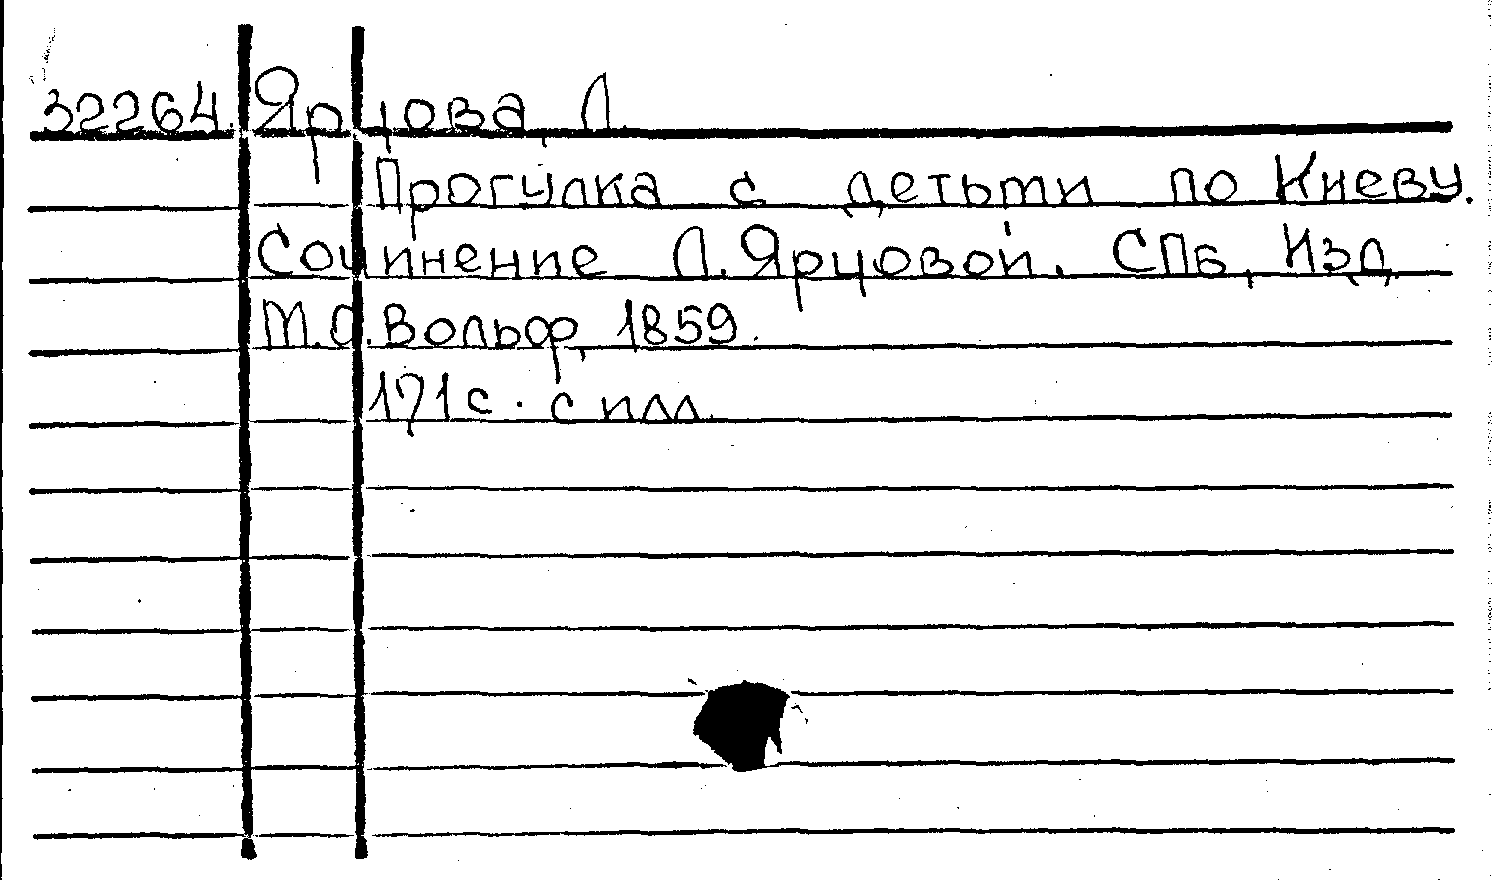 32264. Ярцова, Л.
Прогулка с детьми по Киеву.
Сочинение Л. Ярцовой. СПб, Изд
М.О. Вольф, 1859.
171 с. с илл.